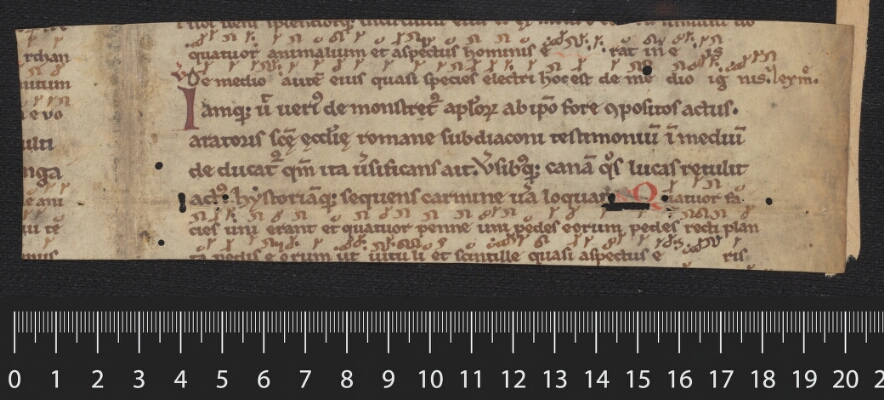 rthan
nutum
a e vo
ulti
nga
e ani
ui te
quatuor animalium et aspectus hominis e rat in e is
De medio autē eius quasi species electri hoc est de me dio ig nis. leym̊.
Iamq; ū uerī de monstret᷑ aplōꝝ ab ipō fore ꝯpositos actus.
aratoris scē ecclię romane subdiaconi testimoniū ī mediū
de ducat᷑ qm̄ ita ūsificans ait. V̓sibꝰq; canā q̊s lucas retulit
actꝰ hystoriāq; sequens carmine uā loquar Quatuor fa
cies uni erant et quatuor penne uni pedes eorum pedes recti plan
ta pedis e eorum ut uitu li et scintille quasi aspectus e ris
0 1 2 3 4 5 6 7 8 9 10 11 12 13 14 15 16 17 18 19 20